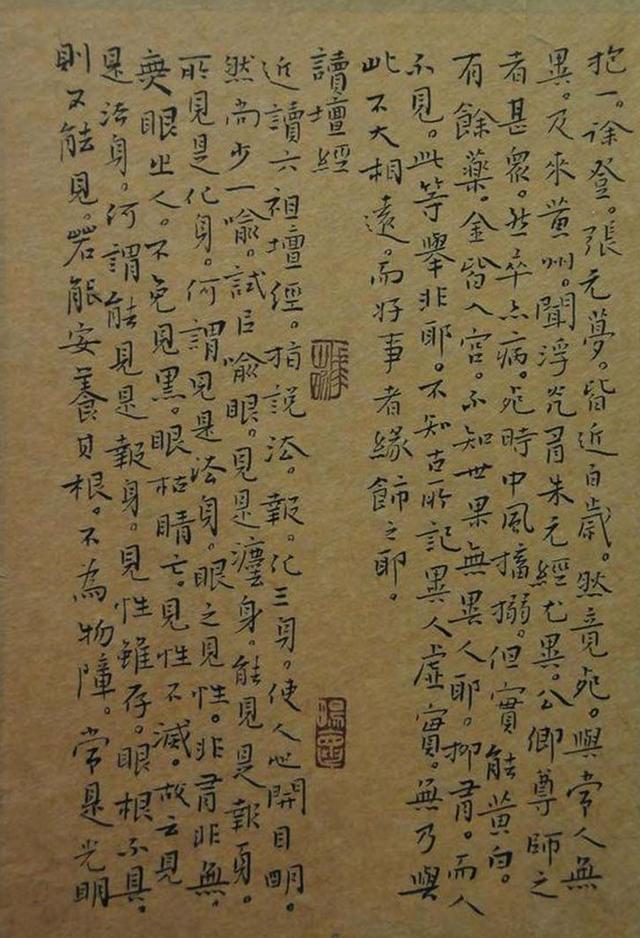 抱一。徐登。張元夢。皆近百歲。然竟死。與常人無
異。及來黃州。聞浮光有朱元經尤異。公卿尊師之
者甚衆。然卒亦病。死時中風搐搦。但實能黃白。
有餘藥。金皆入官。不知世果無異人耶。抑有。而人
不見。此等舉非耶。不知古所記異人虛實。無乃與
此不大相遠。而好事者緣飾之耶。
讀壇經
近讀六祖壇經。指說法。報。化三身。使人心開目明。
然尚少一喻。試以喻眼。見是灋身。能見是報身。
所見是化身。何謂見是法身。眼之見性。非有非無。
無眼之人。不免見黑。眼枯睛亡。見性不滅。故云見
是法身。何謂能見是報身。見性雖存。眼根不具。
則不能見。若能安養其根。不為物障。常是光明